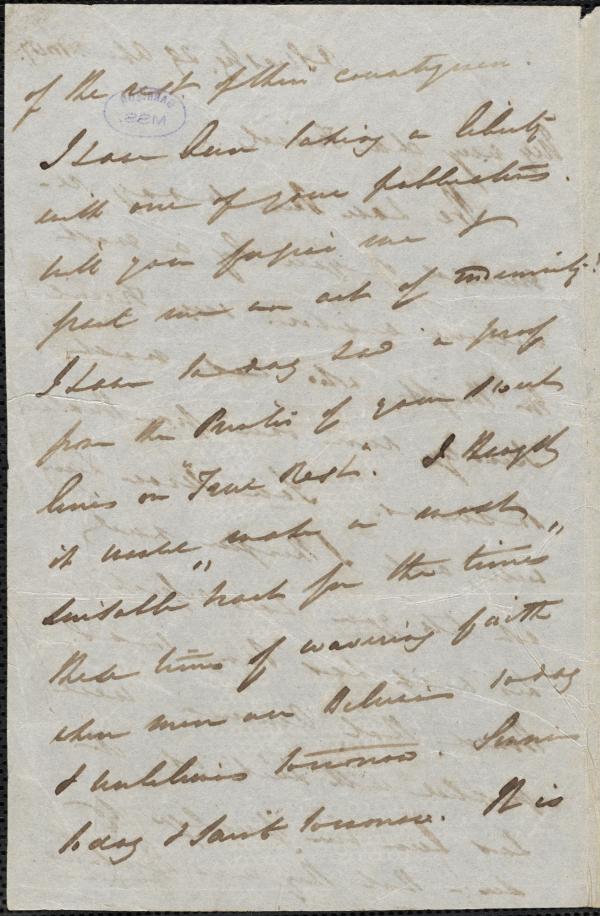 of the rest of their countrymen.
I have been taking a liberty
with one of your publications.
will you forgive me &
grant me an act of indemnity?
I have to day had a proof
from the Printer of your sweet
lines on "True Rest". I thought
it would make a most
suitable "tract for the times"
these times of wavering faith
when men are believers to day
& unbelievers tomorrow. Sinners
to day & Saints tomorrow. It is